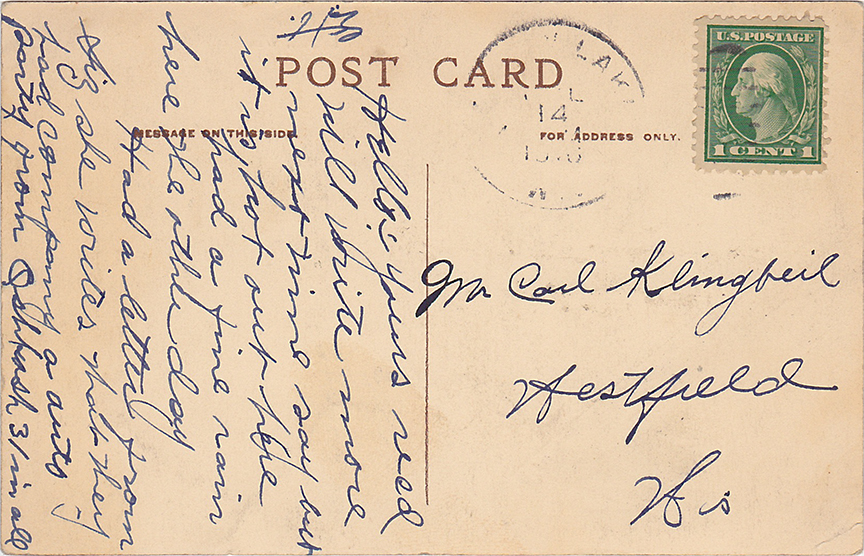 POST CARD
MESSAGE ON THIS SIDE.
FOR ADDRESS ONLY.
LAK
14
U.S.POSTAGE
1 CENT 1
Hello: yours recd
will write more
next time say but
it is hot out here
had a fine rain
here the other day
Had a letter from
Sis she writes that they
had company a auto
party from Oshkosh 31 in all
Mr Carl Klingbeil
Westfield
Wis